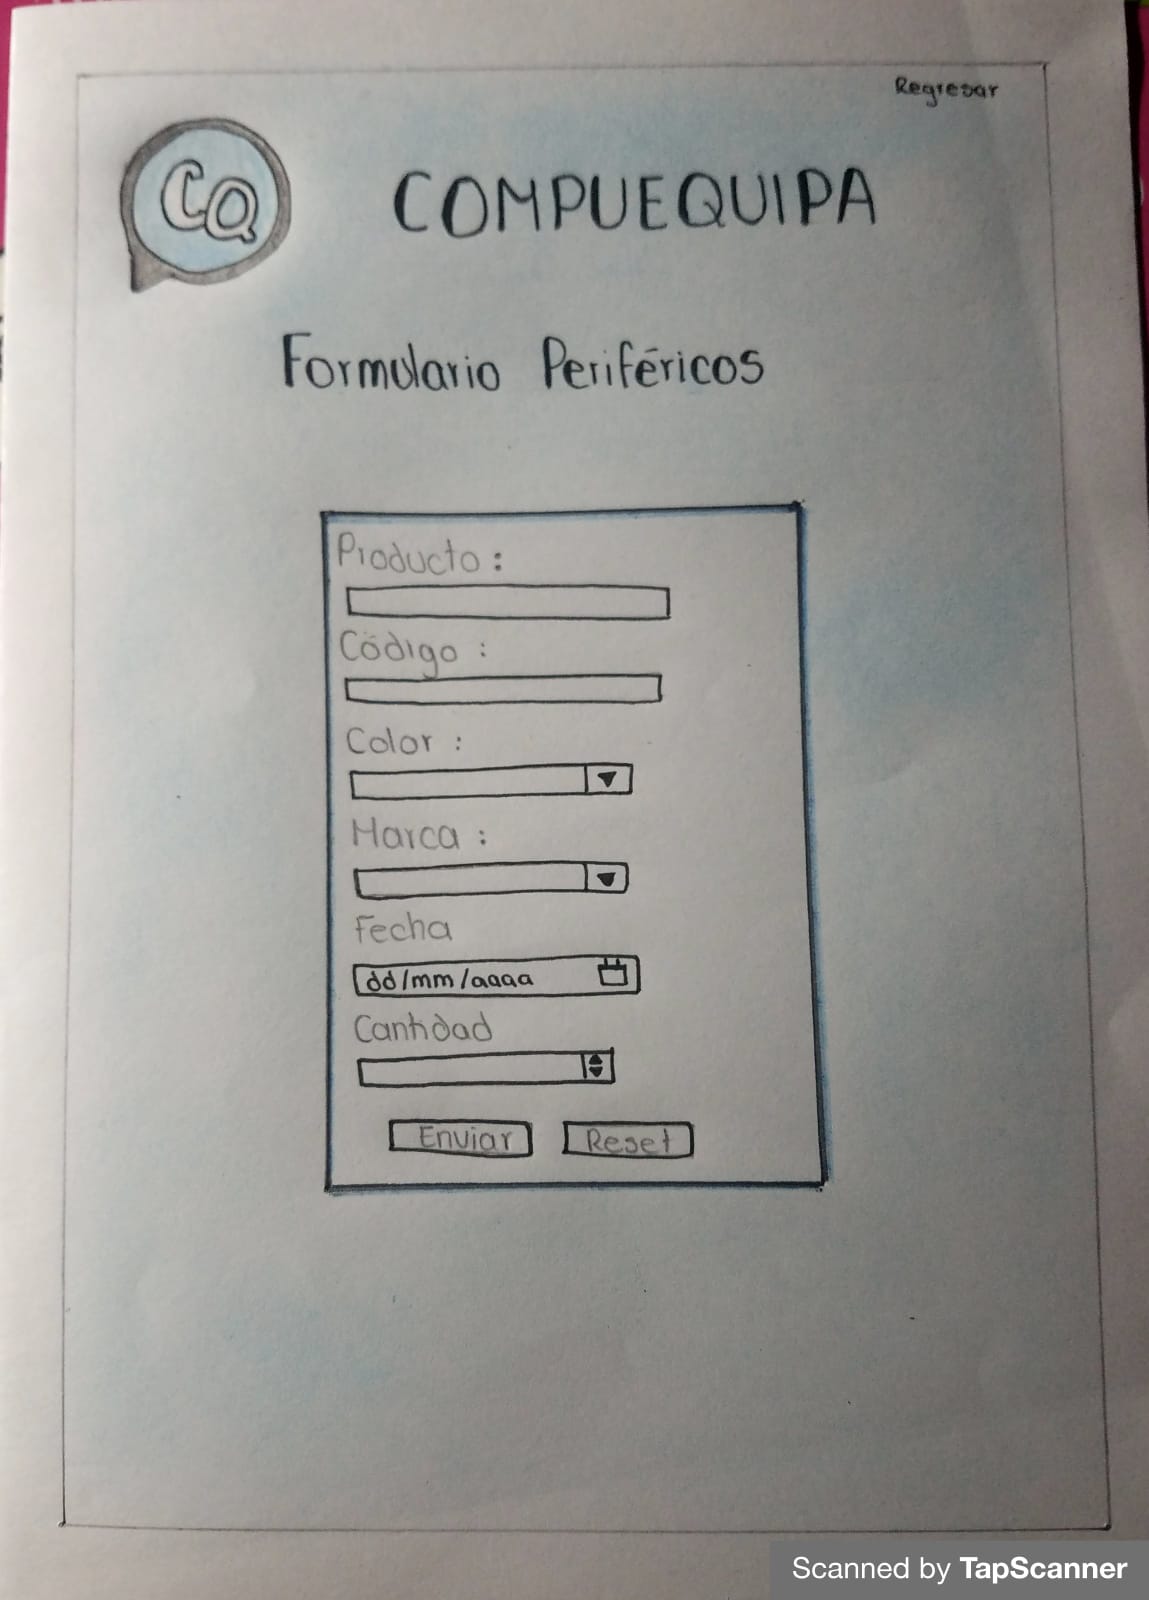 Regresar
CQ
COMPUEQUIPA
Formulario Periféricos
Producto :
Código :
Color :
Marca :
Fecha
dd/mm/aaaa
Cantidad
Enviar Reset
Scanned by TapScanner